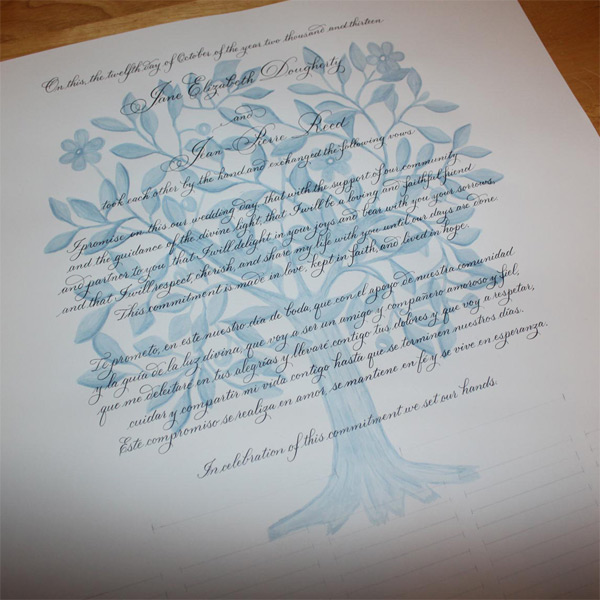 On this, the twelfth day of October of the year two thousand and thirteen
Jane Elizabeth Dougherty
and
Jean-Pierre Reed
took each other by the hand and exchanged the following vows:
I promise on this our wedding day, that with the support of our community
and the guidance of the divine light, that I will be a loving and faithful friend
and partner to you, that I will delight in your joys and bear with you your sorrows,
and that I will respect, cherish, and share my life with you until our days are done.
This commitment is made in love, kept in faith, and lived in hope.
Te prometo, en este nuestro día de boda, que con el apoyo de nuestra comunidad
y la guía de la luz divina, que voy a ser un amigo y compañero amoroso y fiel,
que me deleitaré en tus alegrías y llevaré contigo tus dolores y que voy a respetar,
cuidar y compartir mi vida contigo hasta que se terminen nuestros días.
Este compromiso se realiza en amor, se mantiene en fe y se vive en esperanza.
In celebration of this commitment we set our hands.